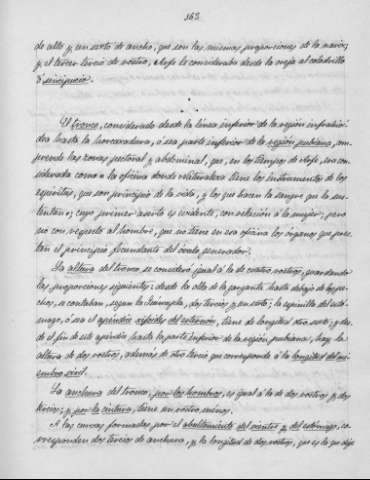 163
de alto y un sexto de ancho, que son las mismas proporciones de la nariz;
y el tercer tercio de rostro, Arfe lo consideraba desde la oreja al colodrillo
ó sincipucio.
El tronco, considerado desde la línea inferior de la región infrahioi-
dea hasta la horcaradura, ó sea parte inferior de la región pubiana, com-
prende las zonas pectoral y abdominal, que, en los tiempos de Arfe, era con-
siderada como a la oficina donde Naturaleza tiene los instrumentos de los
espíritus, que son principio de la vida, y los que hacen la sangre que la sus-
tentan; cuyo primer aserto es evidente, con relación á la mujer; pero
no con respecto al hombre, que no tiene en esa oficina los órganos que pres-
tan el principio fecundante del óvulo generador.
La altura del tronco se consideró igual á la de cuatro rostros, guardando
las proporciones siguientes: desde la olla de la garganta hasta debajo de los pe-
chos, se contaban, según la lámina, dos tercios y un sexto; la espinilla del estó-
mago, ó sea el apéndice xifoides del esternón, tiene de longitud otro sexto; y des-
de el fin de este apéndice hasta la parte inferior de la región pubiana, hay la
altura de dos rostros, además de otro tercio que corresponde á la longitud del mi-
embro viril.
La anchura del tronco, por los hombros, es igual á la de dos rostros y dos
tercios; y por la cintura, tiene un rostro menos.
A las curvas formadas por el abultamiento del vientre y del estómago, co-
rresponden dos tercios de anchura, y la longitud de dos rostros, que es la que deja